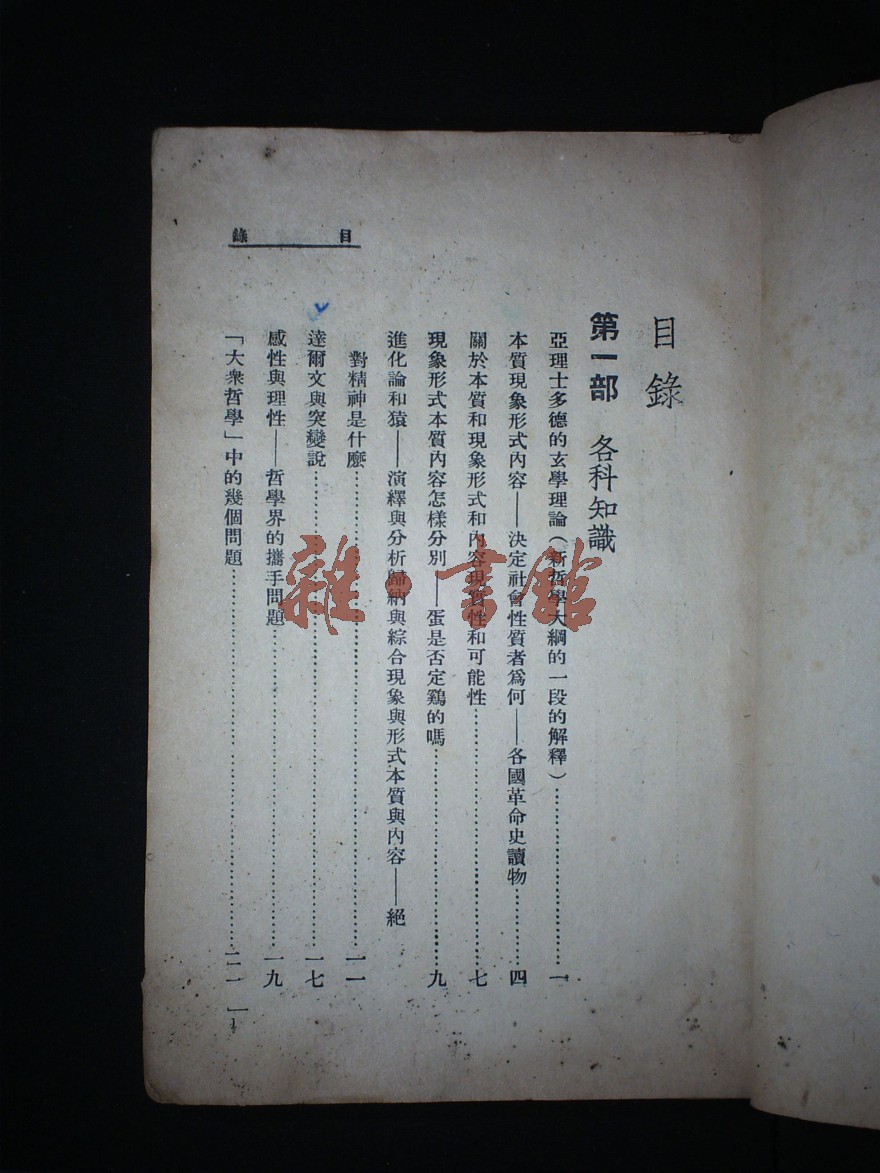 目錄
目錄
第一部 各科知識
亞理士多德的玄學理論(新哲學大綱的一段的解釋)……一
本質現象形式內容——決定社會性質者爲何——各國革命史讀物……四
關於本質和現象形式和內容現實性和可能性……七
現象形式本質內容怎樣分別——蛋是否定鷄的嗎……九
進化論和猿——演繹與分析歸納與綜合現象與形式本質與內容——絕
對精神是什麼……一一
達爾文與突變說……一七
感性與理性——哲學界的攜手問題……一九
「大衆哲學」中的幾個問題……二一
一
雜·書館